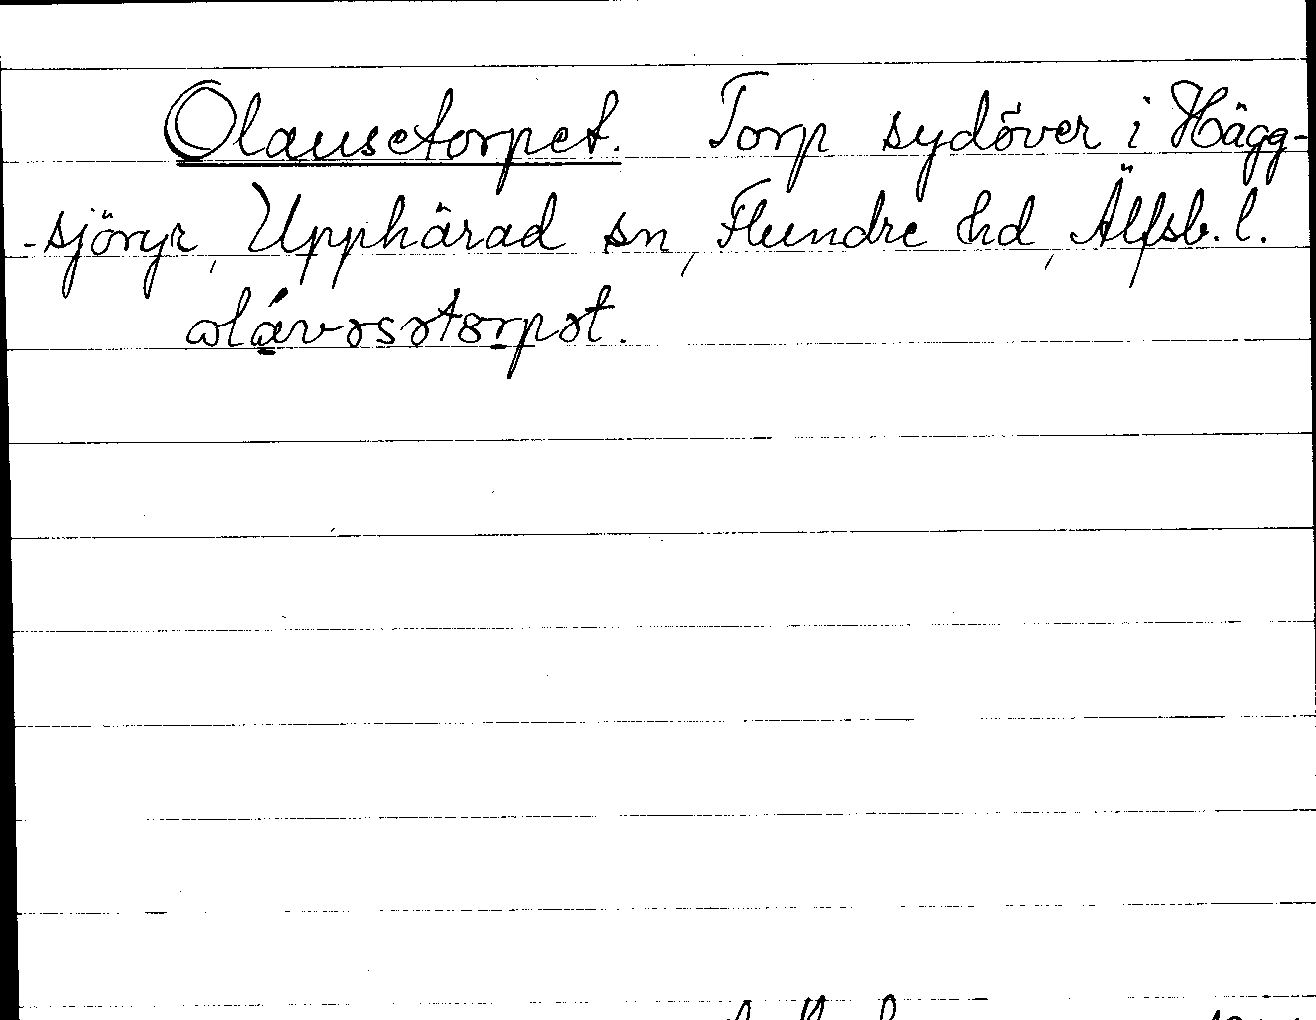 Olausetorpet. Torp sydöver i Hägg-
-sjöryr, Upphärad sn, Flundre hd, Älfsb. l.
ɷlávəsətɵrpət.